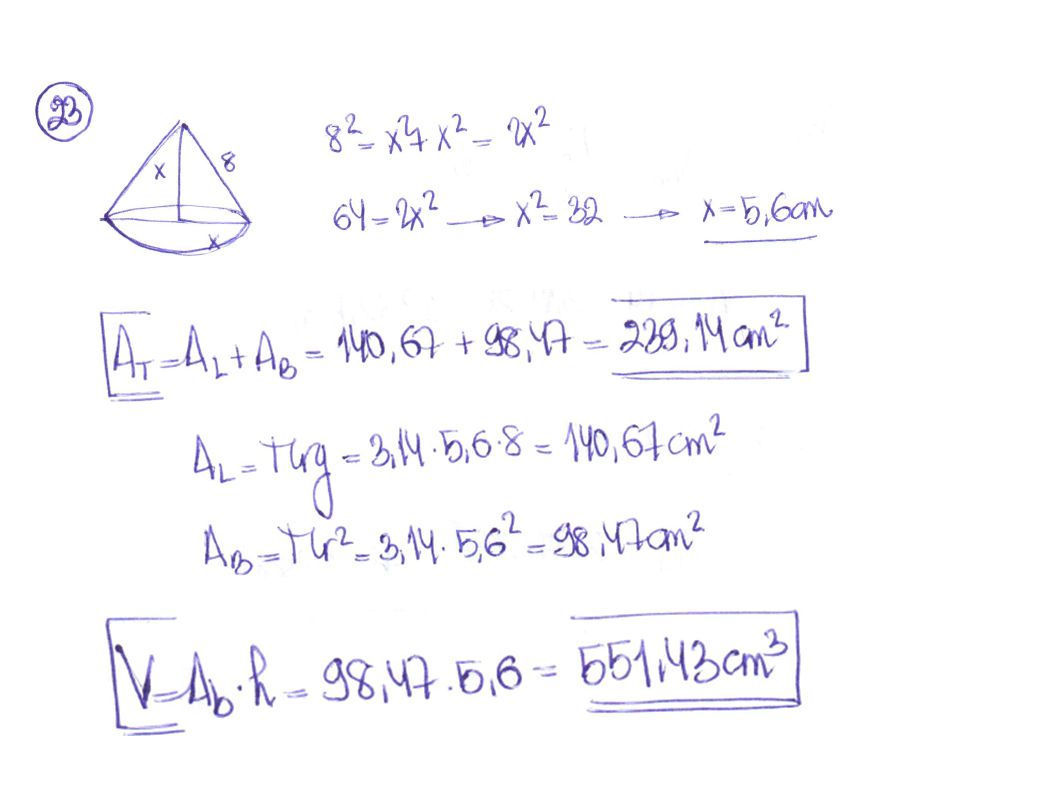 23
x 8
x
8² = x² + x² = 2x²
64 = 2x² → x² = 32 → x = 5,6cm
A_T = A_L + A_B = 140,67 + 98,47 = 239,14 cm²
A_L = πrg = 3,14 · 5,6 · 8 = 140,67 cm²
A_B = πr² = 3,14 · 5,6² = 98,47 cm²
V = A_b · h = 98,47 · 5,6 = 551,43 cm³